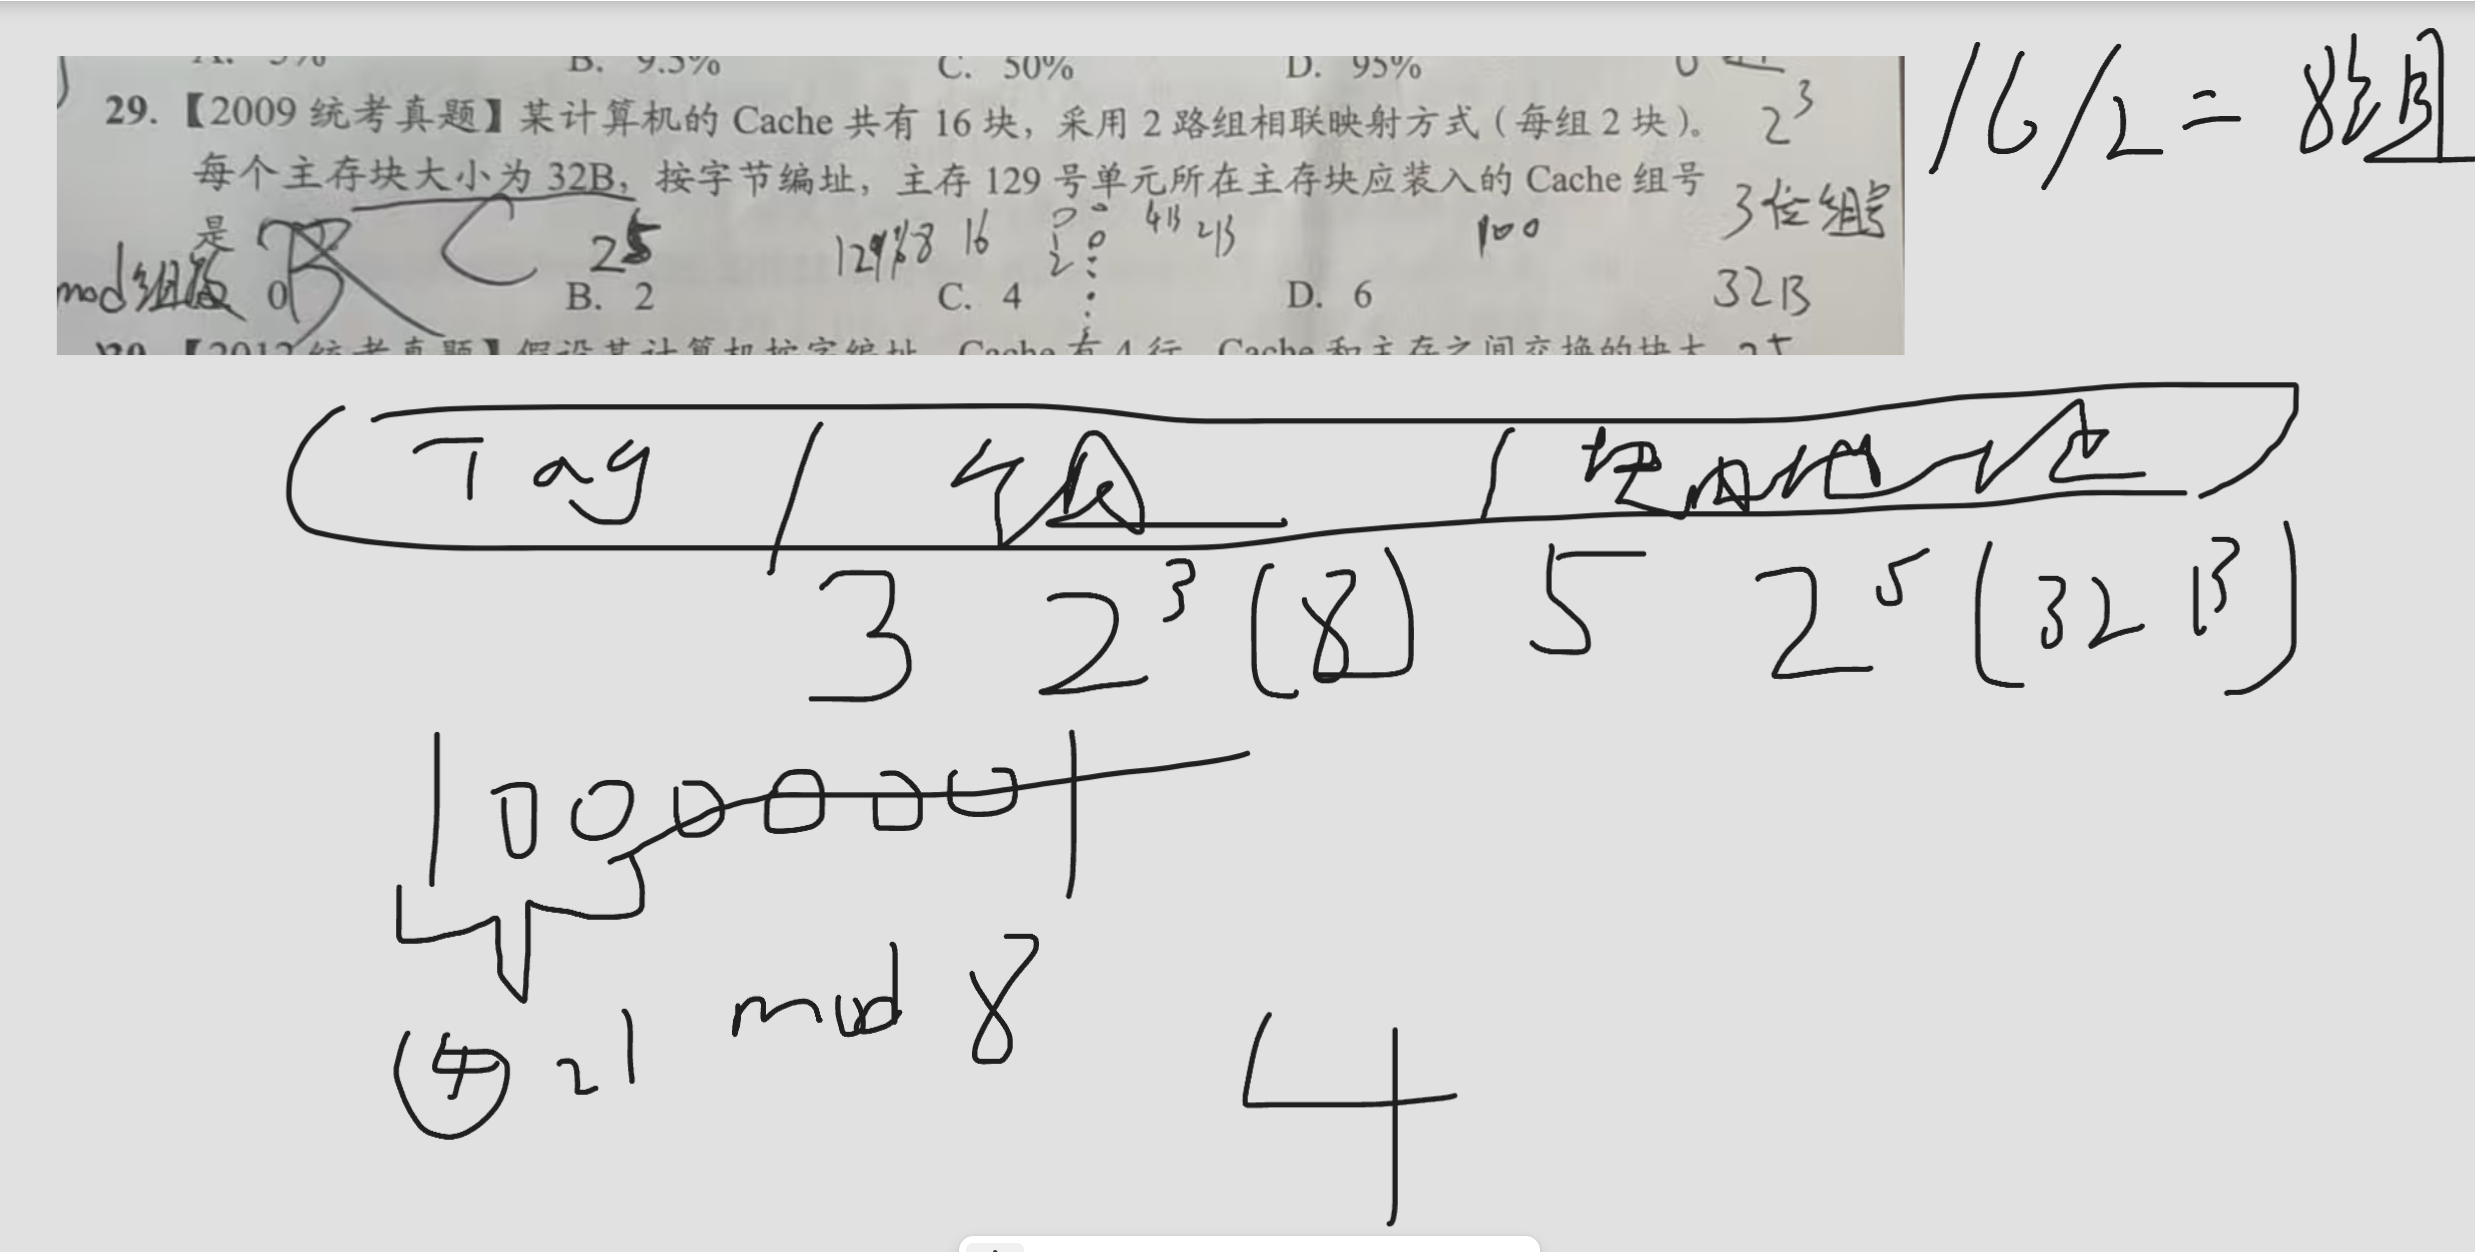 B. 9.3% C. 50% D. 95%
16/2=8组
29.【2009 统考真题】某计算机的 Cache 共有 16 块，采用 2 路组相联映射方式（每组 2 块）。
2³
每个主存块大小为 32B，按字节编址，主存 129 号单元所在主存块应装入的 Cache 组号
3位组号
是
C 25 16 4B 2B 100
mod组
0 B. 2 C. 4 D. 6
32B
【2012 统考真题】假设某计算机按字编址，Cache 有 4 行，Cache 和主存之间交换的块大
Tag / 组 / 块内地址
3 2³ (8) 5 2⁵ (32B)
10000001
4 21 mod 8
4